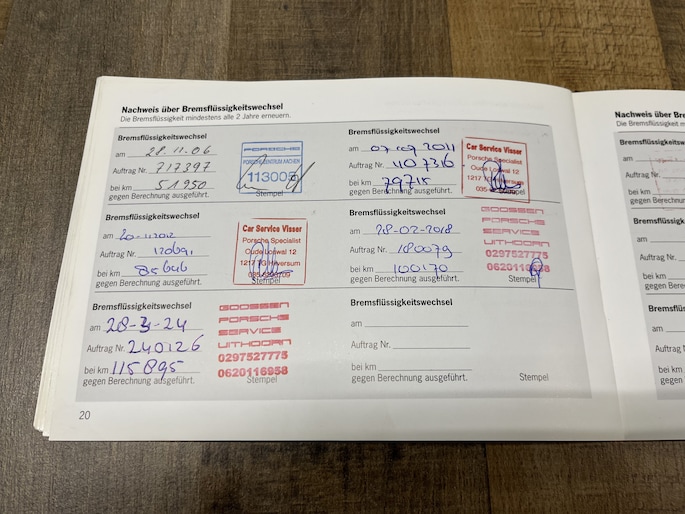 Nachweis über Bremsflüssigkeitswechsel
Die Bremsflüssigkeit mindestens alle 2 Jahre erneuern.
Bremsflüssigkeitswechsel
am 28.11.06
Auftrag Nr. 717397
bei km 51950
gegen Berechnung ausgeführt.
PORSCHE
PORSCHEZENTRUM AACHEN
113009
Stempel
Bremsflüssigkeitswechsel
am 07.09 2011
Auftrag Nr. 1107316
bei km 79715
gegen Berechnung ausgeführt.
Car Service Visser
Porsche Specialist
Oude Loswal 12
Stempel
Bremsflüssigkeitswechsel
am
Auftrag Nr.
bei km 85646
gegen Berechnung ausgeführt.
Car Service Visser
Porsche Specialist
Oude Loswal 12
1217 Hilversum
Stempel
Bremsflüssigkeitswechsel
am 28-02-2018
Auftrag Nr. 180079
bei km 100170
gegen Berechnung ausgeführt.
GOOSSEN
PORSCHE
SERVICE
UITHOORN
0297527775
Stempel
Bremsflüssigkeitswechsel
am 28-3-24
Auftrag Nr. 240126
bei km 115895
gegen Berechnung ausgeführt.
GOOSSEN
PORSCHE
SERVICE
UITHOORN
0297527775
0620116958
Stempel
Bremsflüssigkeitswechsel
am
Auftrag Nr.
bei km
gegen Berechnung ausgeführt.
Stempel
20
Nachweis über
Die Bremsflüssigkeit
am
Auftrag Nr.
bei km
am
Auftrag Nr.
bei km
am
Auftrag
bei km